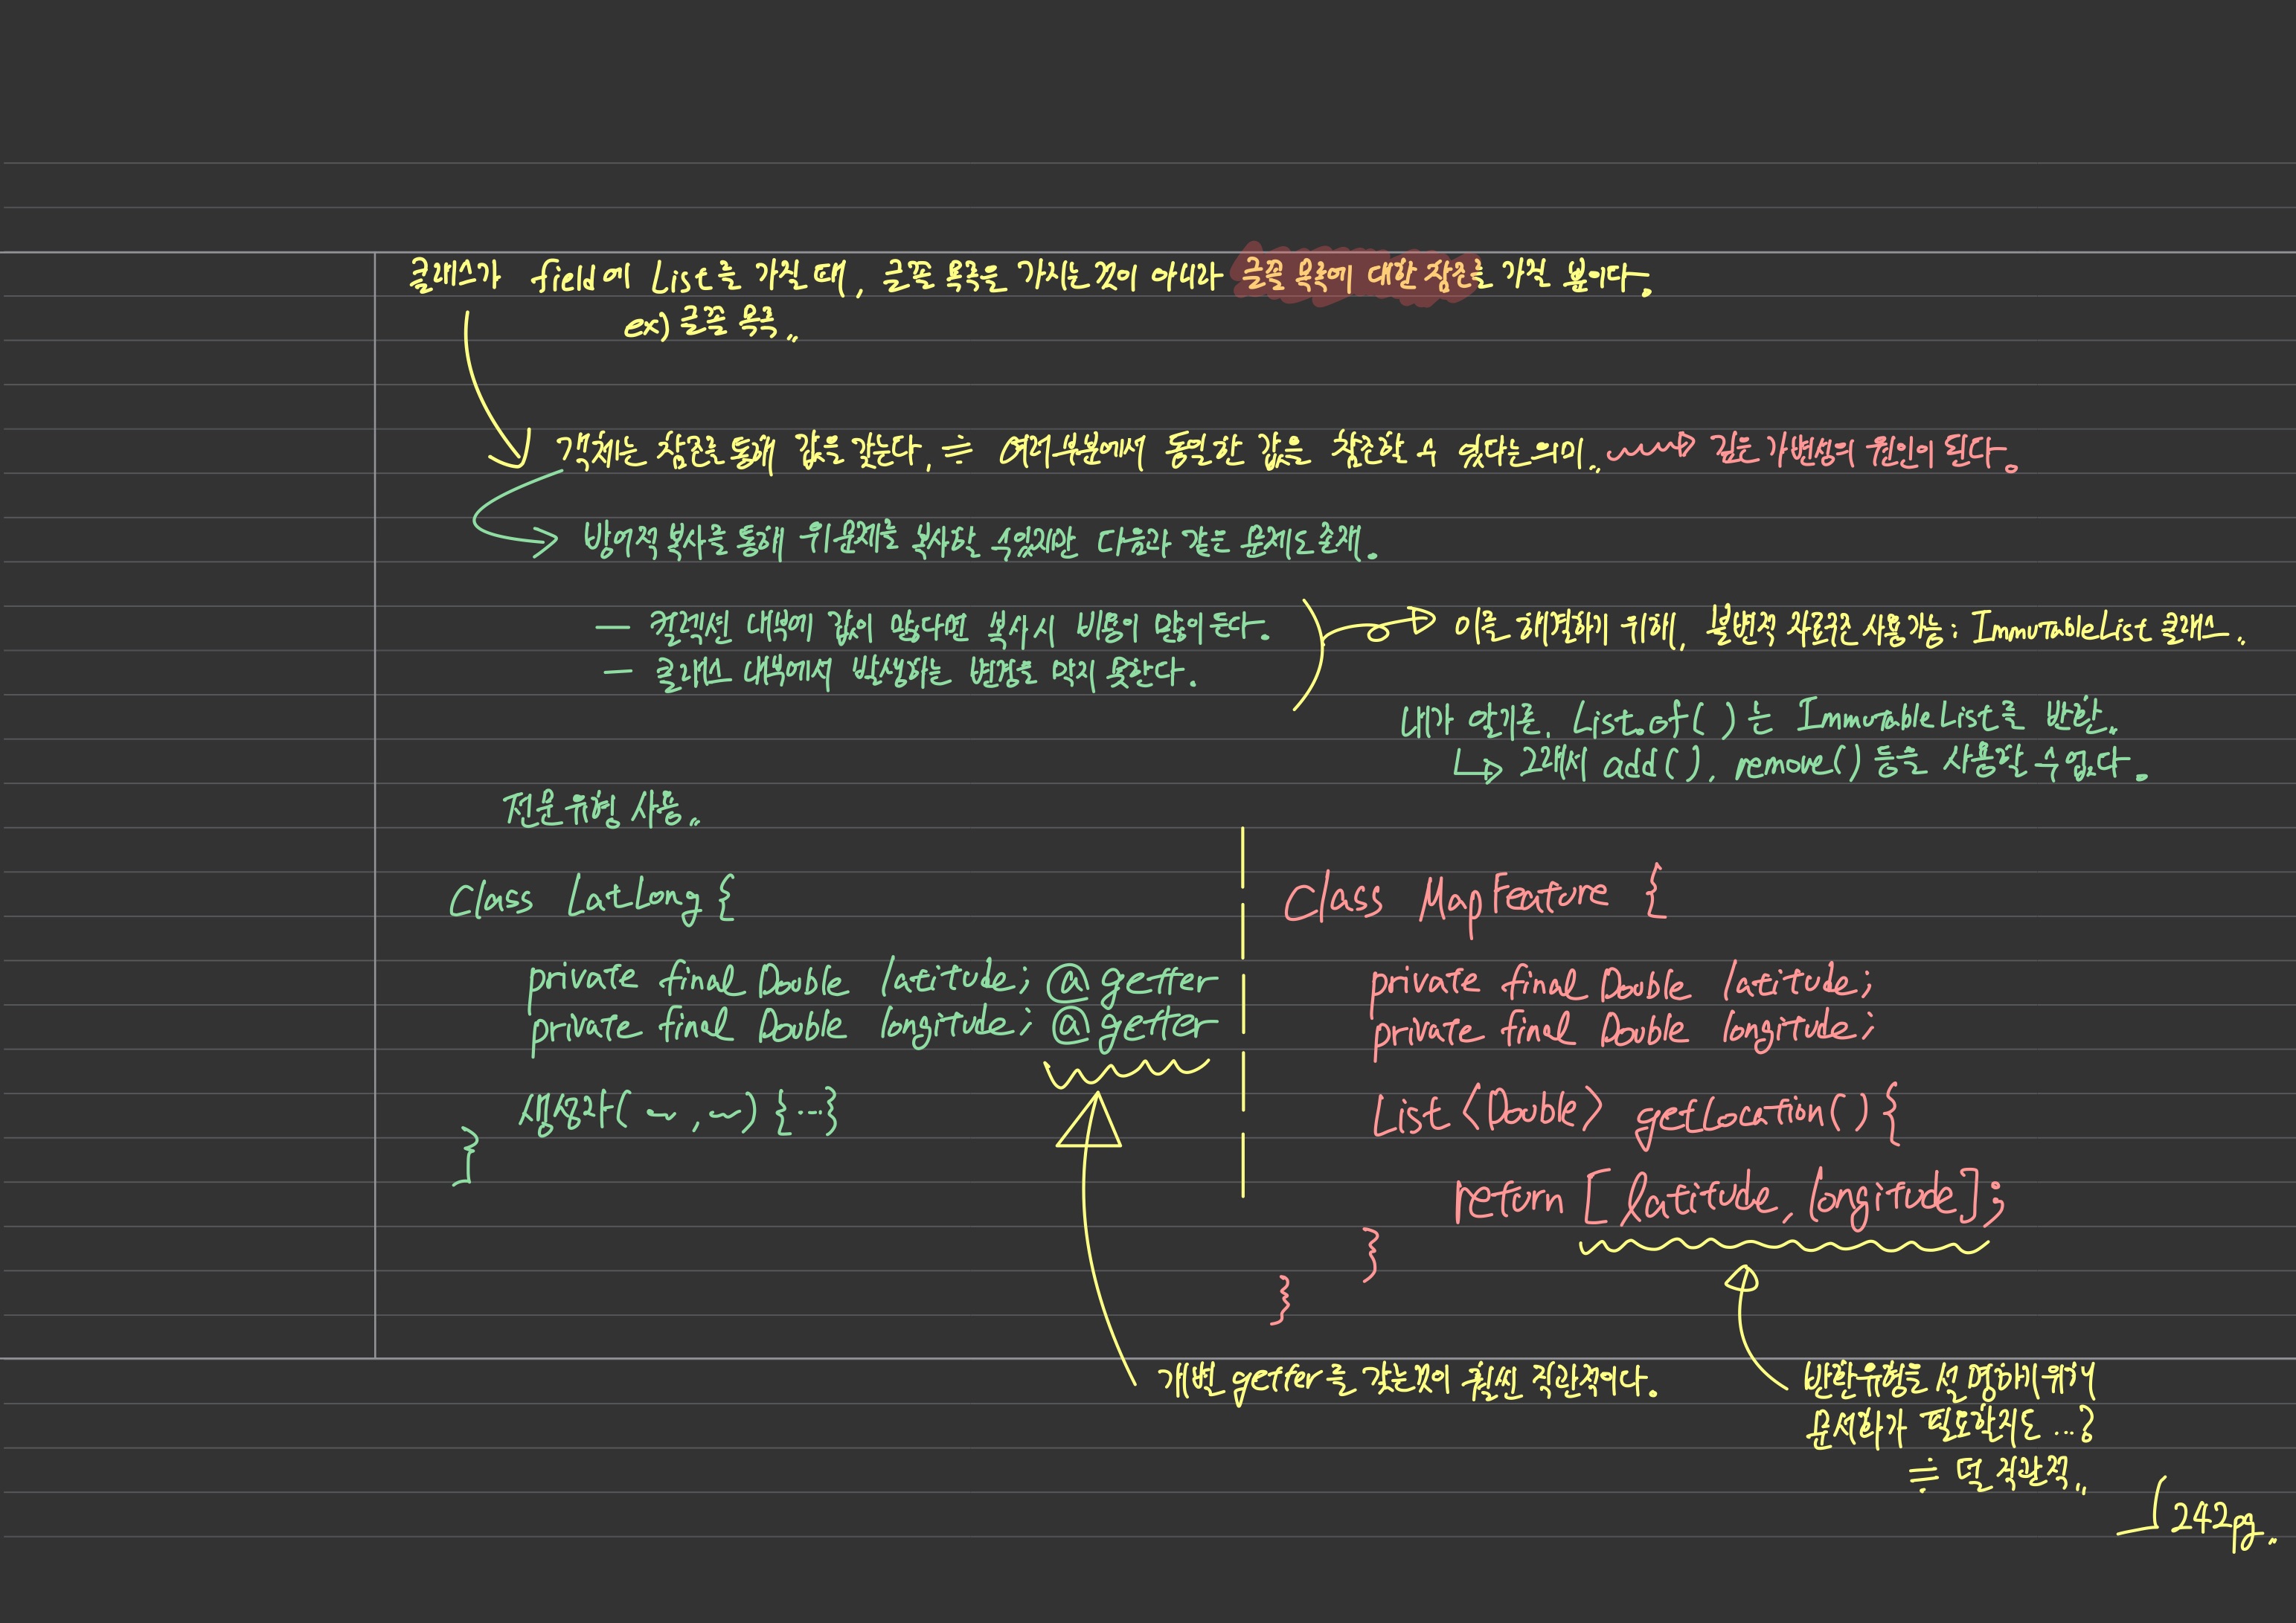 클래스가 field에 List를 가질 때, 글꼴 목록을 가지는 것이 아니라 글꼴 목록에 대한 참조를 가질 뿐이다.
ex) 글꼴 목록..
객체는 참조를 통해 값을 갖는다. ≒ 여러부분에서 동일한 값을 참조할 수 있다는 의미.. 깊은 가변성의 원인이 된다.
방어적 복사를 통해 위 문제를 복사할 수 있지만 다음과 같은 문제도 존재.
- 컬렉션 내부에 값이 많다면 복사시 비용이 많이 든다.
- 클래스 내부에서 발생하는 변경을 막지 못한다.
이를 해결하기 위해, 불변적 자료구조 사용가능 : ImmuTableList 클래스..
내가 알기론, List.of()는 ImmutableList를 반환..
↳ 그래서 add(), remove() 등을 사용할 수 없다.
전문유형 사용..
Class LatLong {
private final Double latitude; @getter
private final Double longitude; @getter
생성자( ~ , ~ ) {...}
}
Class MapFeature {
private final Double latitude;
private final Double longitude;
List<Double> getLocation() {
return [latitude, longitude];
}
}
개별 getter를 갖는것이 훨씬 직관적이다.
반환유형을 설명하기위해
문서화가 필요할지도 ...?
≒ 덜 직관적..
242pg..